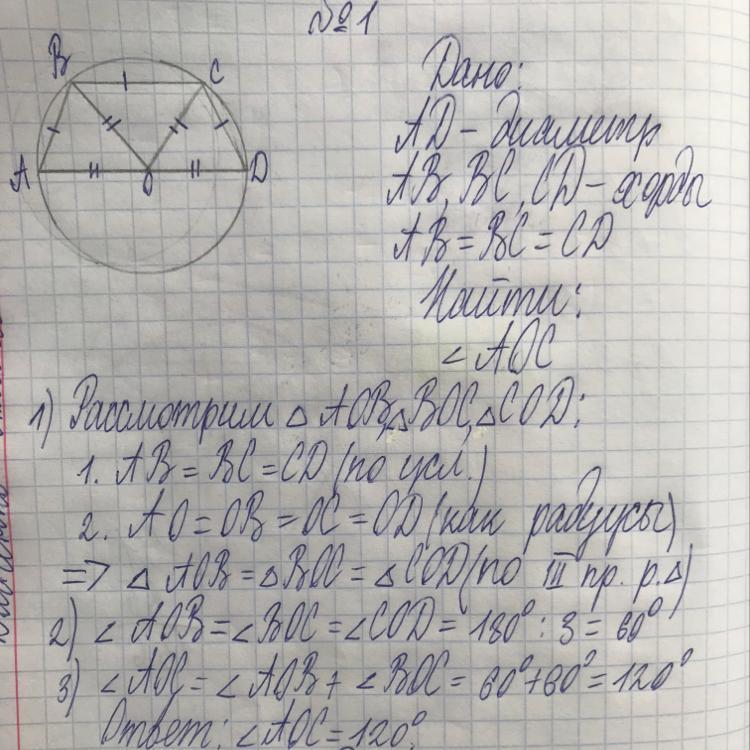 №1
B C
A O D
Дано:
AD - диаметр
AB, BC, CD - хорды
AB = BC = CD
Найти:
∠AOC
1) Рассмотрим △AOB, △BOC, △COD:
1. AB = BC = CD (по усл.)
2. AO = OB = OC = OD (как радиусы)
=> △AOB = △BOC = △COD (по III пр. р.△)
2) ∠AOB = ∠BOC = ∠COD = 180° : 3 = 60°
3) ∠AOC = ∠AOB + ∠BOC = 60° + 60° = 120°
Ответ: ∠AOC = 120°.